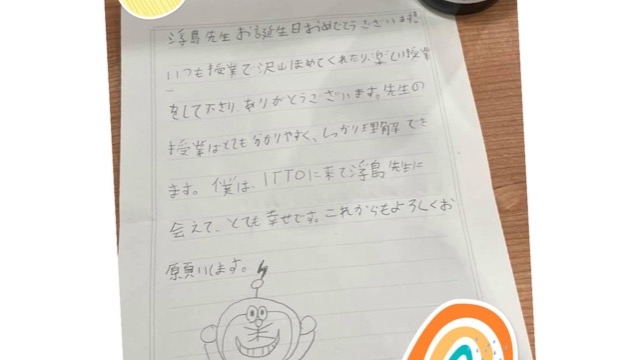 浮島先生お誕生日おめでとうございます。
いつも授業で沢山ほめてくれたり、楽しい授業
をして下さり、ありがとうございます。先生の
授業はとても分かりやすく、しっかり理解でき
ます。僕は、ITTOに来て浮島先生に
会えて、とても幸せです。これからもよろしくお
願いします。